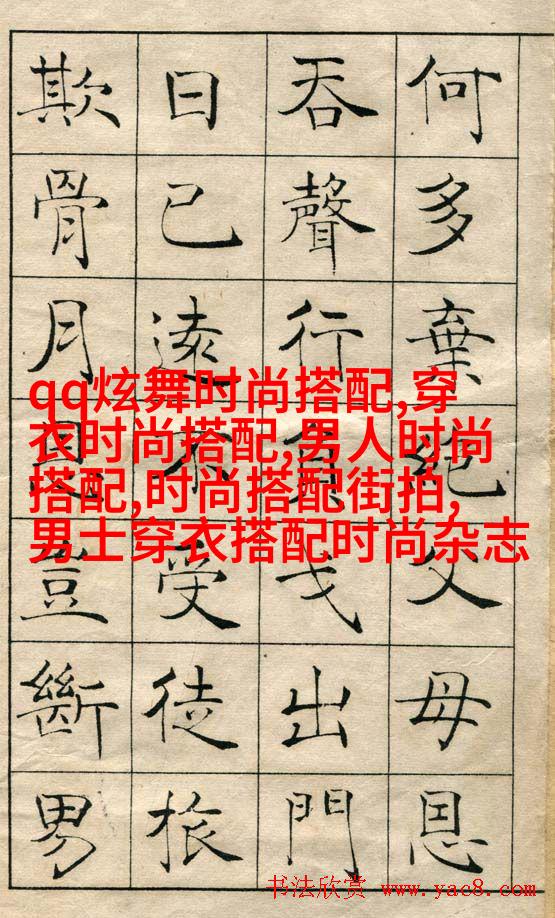 何多棄絕父母恩
吞聲行負戈出門
日已遠不受徒旅
欺骨月豈斷男
qq炫舞时尚搭配,穿
衣时尚搭配,男人时尚
搭配,时尚搭配街拍,
男士穿衣搭配时尚杂志
书法欣赏 www.yac8.com